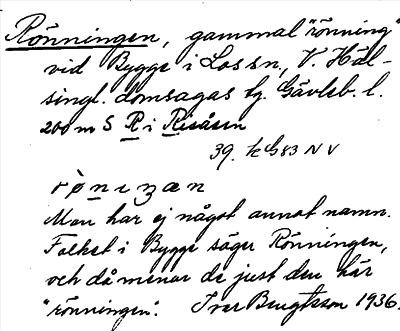 Rönningen, gammal "rönning"
vid Bygge i Lossn., V. Häl-
singl. domsagas tg. Gävleb. l.
200 m S R i Risåsen
39. K G83 N V
rö̀nıŋæn
Man har ej något annat namn.
Folket i Bygge säger Rönningen,
och då menar de just den här
"rönningen". Iver Bengtsson 1936.